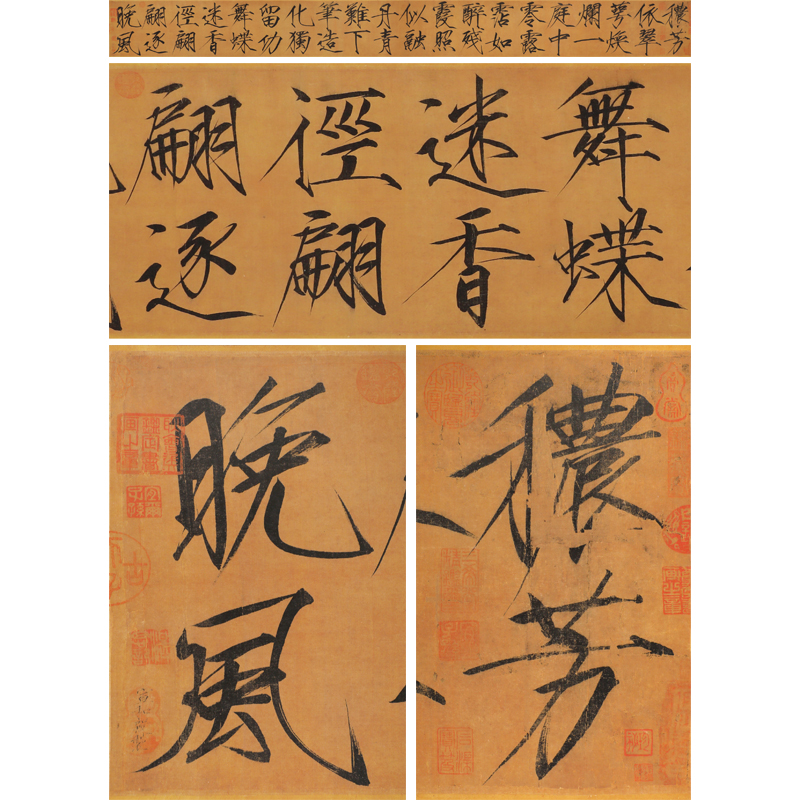 穠芳
依翠
萼煥
爛一
庭中
零露
霑如
醉殘
霞照
似融
丹青
難下
筆造
化獨
留功
舞蝶
迷香
徑翩
翩逐
晚風
舞蝶
迷香
徑翩
翩逐
穠芳
晚風